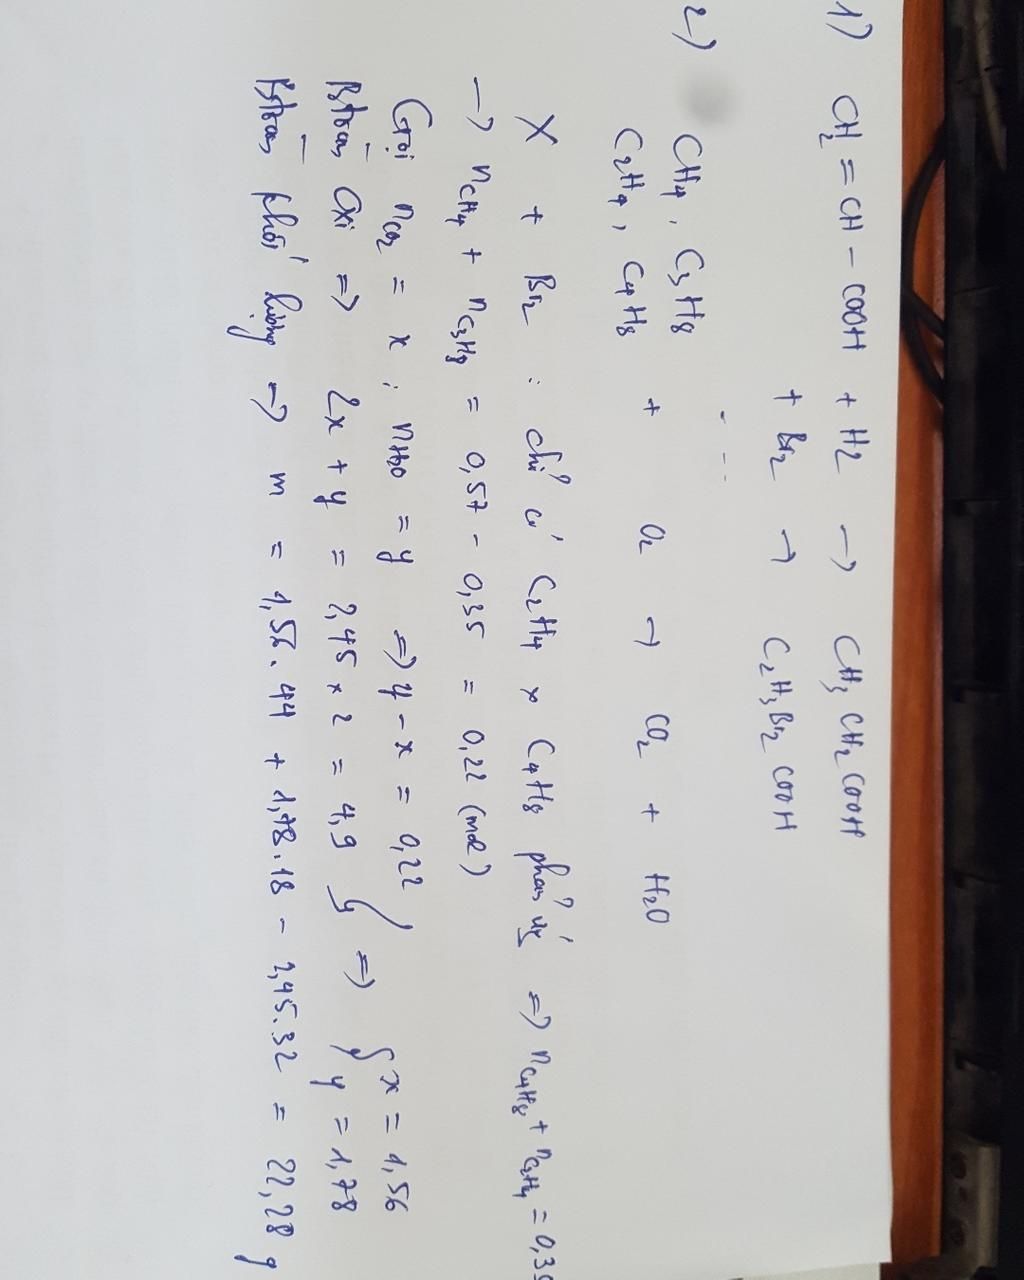 1) CH2 = CH - COOH + H2 → CH3CH2COOH
+ Br2 → C2H3Br2COOH
2)
CH4, C3H8
C2H4, C4H8 + O2 → CO2 + H2O
X + Br2 : chỉ có C2H4 x C4H8 phản ứng ⇒ nC4H8 + nC2H4 = 0,35
→ nCH4 + nC3H8 = 0,57 - 0,35 = 0,22 (mol)
Gọi nCO2 = x ; nH2O = y ⇒ y - x = 0,22
Btoàn Oxi ⇒ 2x + y = 2,45 x 2 = 4,9 } ⇒ { x = 1,56
y = 1,78
Btoàn khối lượng → m = 1,56.44 + 1,78.18 - 2,45.32 = 22,28 g